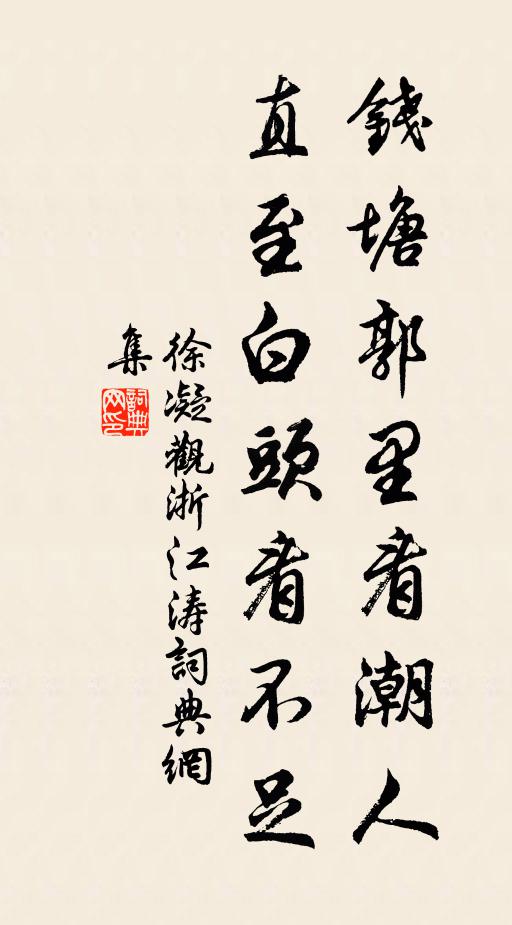 錢塘郭里看潮人
直至白頭看不足
徐凝觀浙江濤詞典網
集
詞典網印